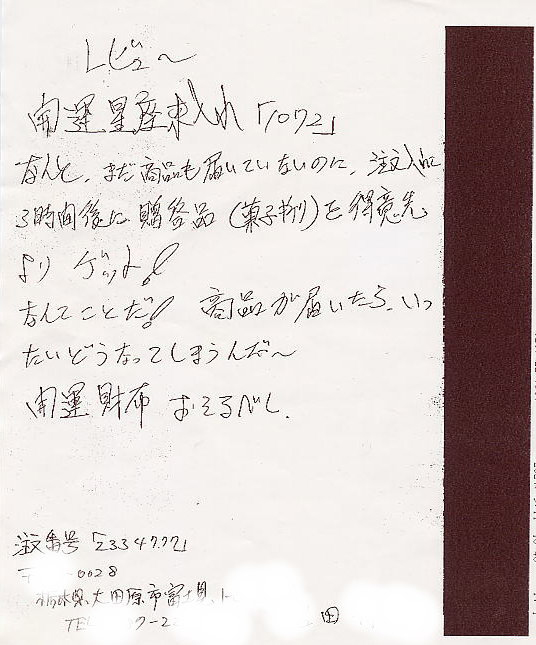 レビュ〜
開運星座束入れ「1072」
なんと、まだ商品も届いていないのに、注文後に
3時間後に贈答品(菓子折り)を得意先
より ゲット!
なんてことだ! 商品が届いたら、いっ
たいどうなってしまうんだ〜
開運財布 おそるべし。
注文番号「2334777」
〒 0028
栃木県大田原市富士見1
TEL 7-2 田